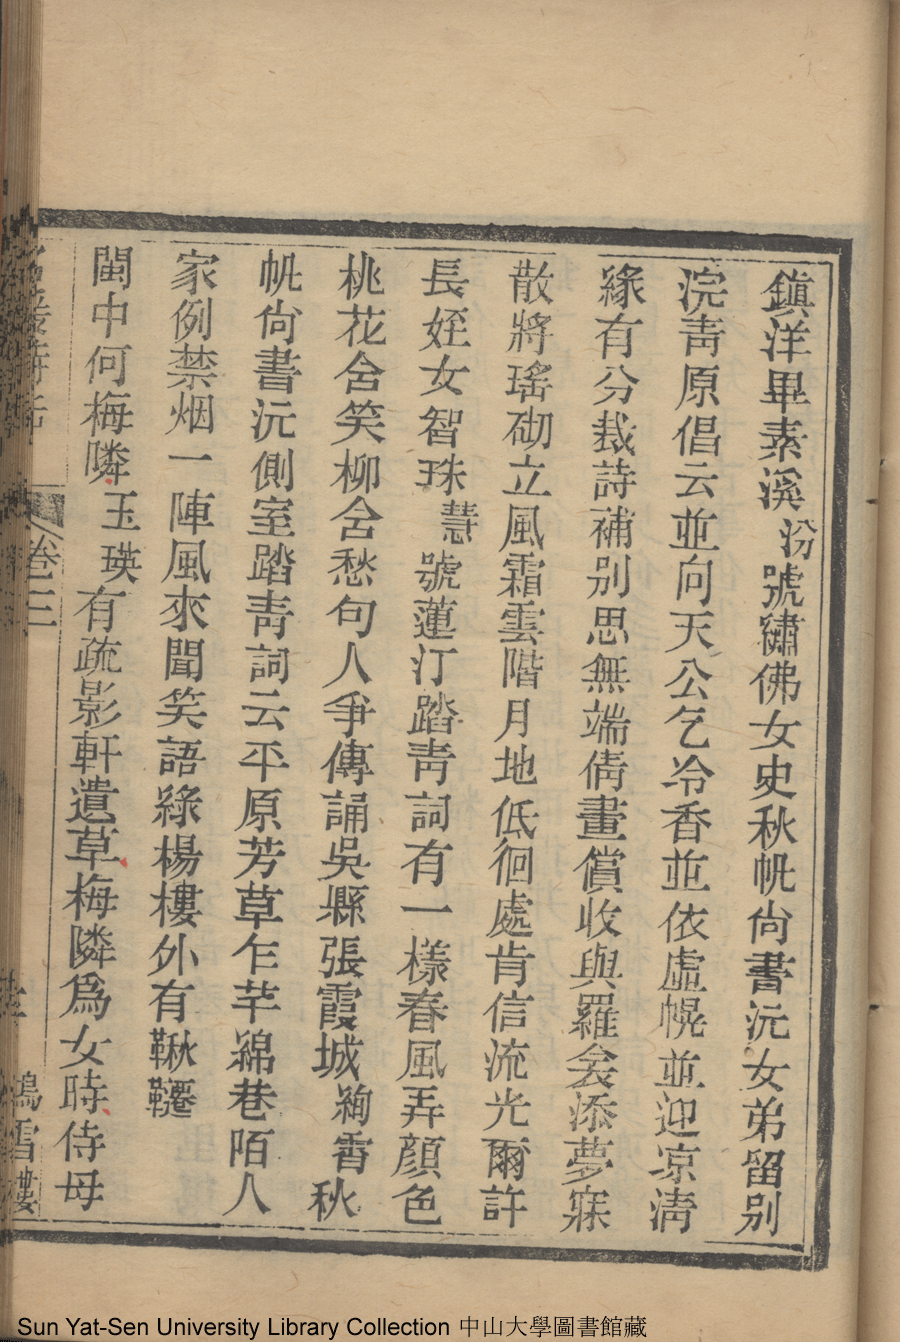 鎮洋畢素溪汾號繡佛女史秋帆尙書沅女弟留别
浣靑原倡云並向天公乞冷香並依虛幌並迎凉淸
緣有分裁詩補别思無端倩畫償收與羅衾添夢寐
散將瑤砌立風霜雲階月地低徊處肯信流光爾許
長姪女智珠慧號蓮汀踏靑詞有一樣春風弄顔色
桃花含笑柳含愁句人爭傳誦吳縣張霞城絢霄秋
帆尙書沅側室踏靑詞云平原芳草乍芊綿巷陌人
家例禁烟一陣風來聞笑語綠楊樓外有鞦韆
閩中何梅隣玉瑛有疏影軒遺草梅隣爲女時侍母
卷三
鴻雪樓
Sun Yat-Sen University Library Collection 中山大學圖書館藏